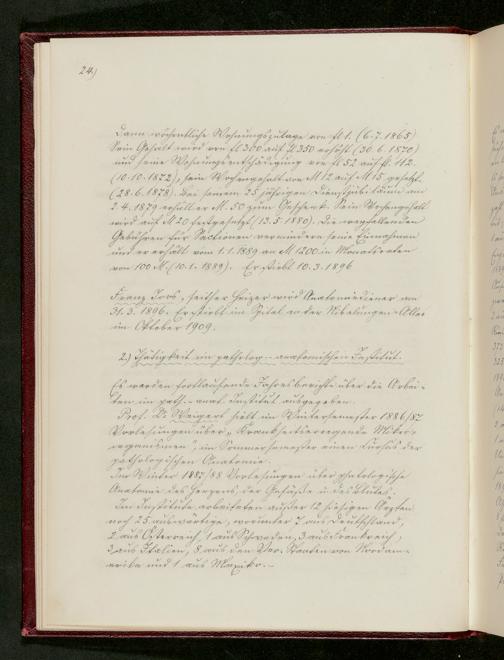 24)
Dann wöchentliche Wohnungszulage von fl 1. (6.7.1865)
Sein Gehalt wird von fl 300 auf fl 350 erhöht (30.6.1870)
und seine Wohnungsentschädigung von fl 52 auf fl. 112.
(10.10.1872), sein Wochengehalt von M 12 auf M 15 gesetzt.
(28.6.1878). Bei seinem 25 jährigen Dienstjubiläum am
2.4.1879 erhält er M. 50 zum Geschenk. Sein Wochengehalt
wird auf M 20 festgesetzt (13.5.1880). Die wegfallenden
Gebühren für Sectionen vermindern seine Einnahmen
und er erhält vom 1.1.1889 an M 1200 in Monatsraten
von 100 M. (10.1.1889). Er stirbt 10.3.1896
Franz Joos, seither Heizer wird Anatomiediener am
31.3.1896. Er stirbt im Spital in der Nibelungen-Allee
im Oktober 1909.
2.) Thätigkeit im patholog.-anatomischen Institut.
Es werden fortlaufende Jahresberichte über die Arbei-
ten im path.-anat. Institut ausgegeben.
Prof. Dr. Weigert hält im Wintersemester 1886/87
Vorlesungen über „Krankheiterregende Mikro-
organismen", im Sommersemester einen Cursus der
pathologischen Anatomie.
Im Winter 1887/88 Vorlesungen über pathologische
Anatomie des Herzens, der Gefäße u. des Blutes.
Im Institute arbeiteten außer 12 hiesigen Ärzten
noch 25 auswärtige, worunter 7 aus Deutschland,
2 aus Österreich, 1 aus Schweden, 3 aus Frankreich,
3 aus Italien, 8 aus den Ver. Staaten von Nordam-
erika und 1 aus Mexiko.-